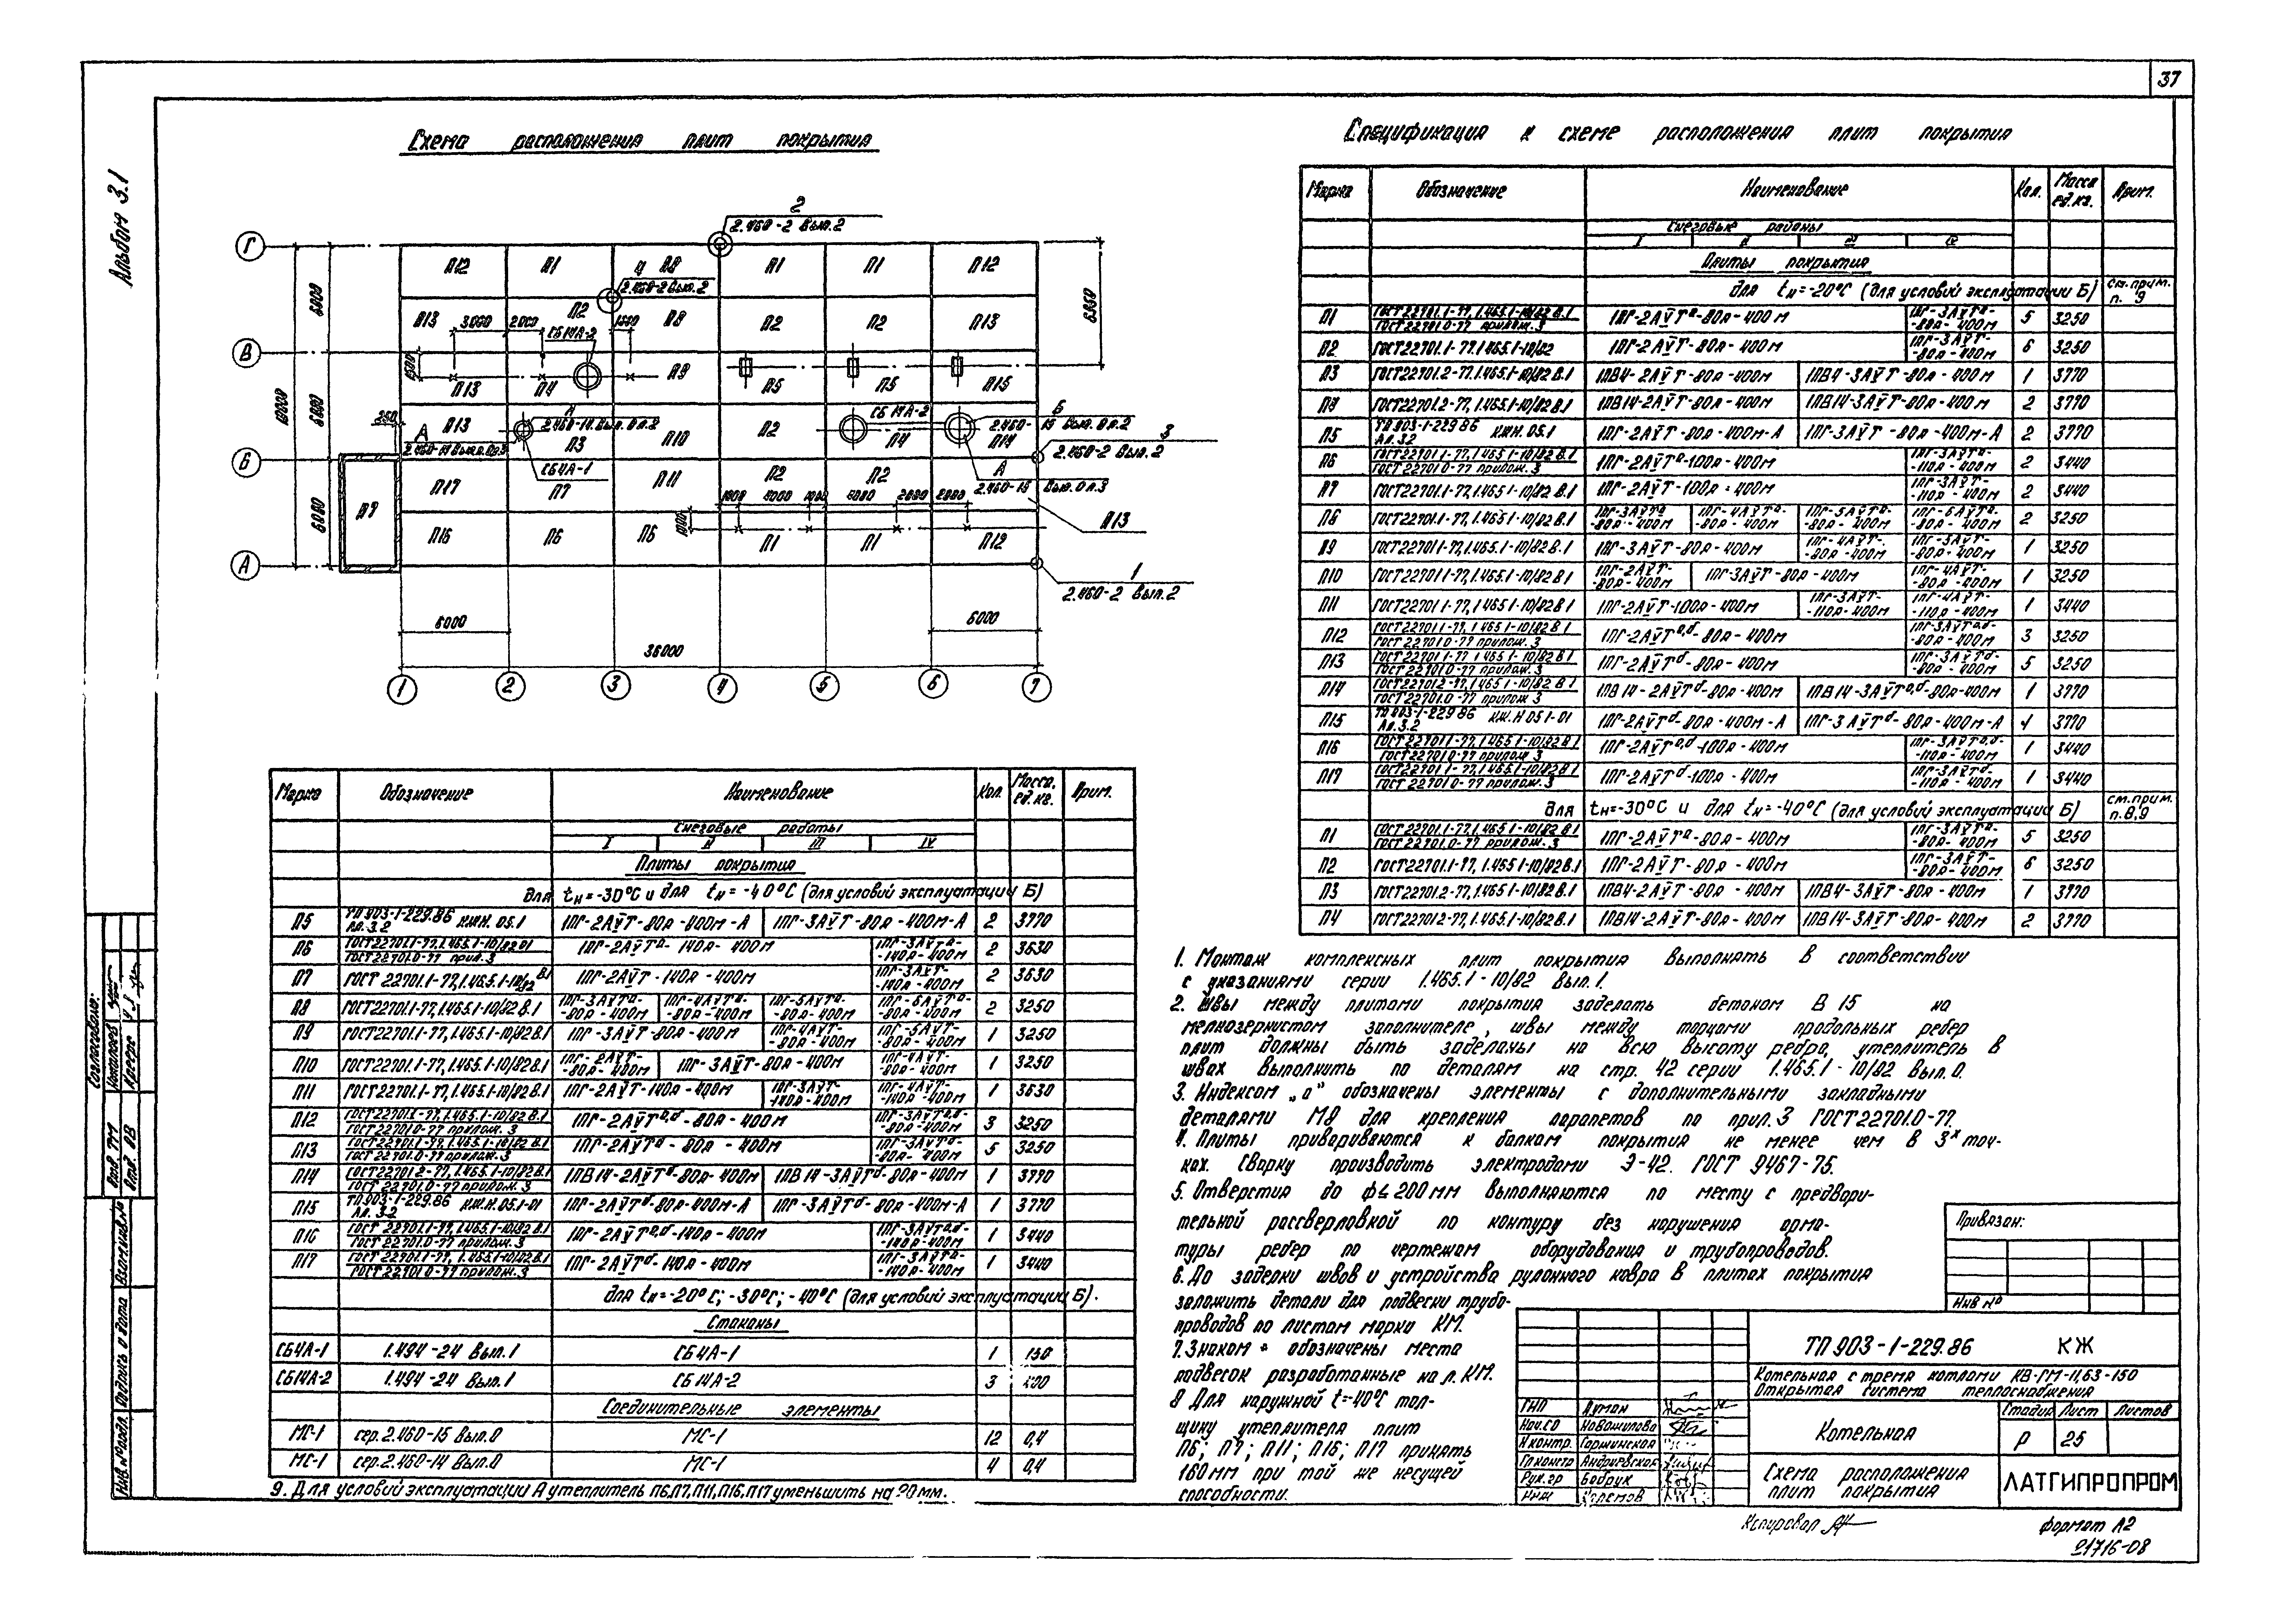 37
Альбом 3.1
Схема расположения плит покрытия
2
2.460-2 Вып.2
Г
В
Б
А
П12 П1 П8 П1 П1 П12
4
2.460-2 Вып.2
П13 П2 П8 П2 П2 П13
3000 2000 1500
СБ14А-2
П13 П4 П9 П5 П5 П15
П13 П3 П10 П2 П4 П14
СБ 14А-2
Б
А
3
2.460-2 Вып.2
СБ4А-1
П17 П7 П11 П2 П2
П13
П7
П16 П6 П6 П1 П1 П12
1
2.460-2 Вып.2
6000
6000
6000
18000
6000
36000
1 2 3 4 5 6 7
Спецификация к схеме расположения плит покрытия
Марка Обозначение Наименование Кол. Масса ед.кг. Прим.
Снеговые районы
I II III IV
Плиты покрытия
для tн=-20°С (для условий эксплуатации Б) см.прим. п. 9
П1 ГОСТ22701.1-77,1.465.1-10/82 В.1 ГОСТ22701.0-77 прилож.3 1ПГ-2АVТа-80л-400м 1ПГ-3АVТа-80л-400м 5 3250
П2 ГОСТ22701.1-77.1.465.1-10/82 1ПГ-2АVТ-80л-400м 1ПГ-3АVТ-80л-400м 6 3250
П3 ГОСТ22701.2-77,1.465.1-10/82 В.1 1ПВ4-2АVТ-80л-400м 1ПВ4-3АVТ-80л-400м 1 3770
П4 ГОСТ22701.2-77,1.465.1-10/82 В.1 1ПВ14-2АVТ-80л-400м 1ПВ14-3АVТ-80л-400м 2 3770
П5 ТП 903-1-229.86 Ал.3.2 КЖИ.05.1 1ПГ-2АVТ-80л-400м-А 1ПГ-3АVТ-80л-400м-А 2 3770
П6 ГОСТ22701.1-77,1.465.1-10/82 В.1 ГОСТ22701.0-77 прилож.3 1ПГ-2АVТа-100л-400м 1ПГ-3АVТа-110л-400м 2 3440
П7 ГОСТ22701.1-77,1.465.1-10/82 В.1 1ПГ-2АVТ-100л-400м 1ПГ-3АVТ-110л-400м 2 3440
П8 ГОСТ22701.1-77,1.465.1-10/82 В.1 1ПГ-3АVТа-80л-400м 1ПГ-4АVТа-80л-400м 1ПГ-5АVТа-80л-400м 1ПГ-6АVТа-80л-400м 2 3250
П9 ГОСТ22701.1-77,1.465.1-10/82 В.1 1ПГ-3АVТ-80л-400м 1ПГ-4АVТ-80л-400м 1ПГ-5АVТ-80л-400м 1 3250
П10 ГОСТ22701.1-77,1.465.1-10/82 В.1 1ПГ-2АVТ-80л-400м 1ПГ-3АVТ-80л-400м 1ПГ-4АVТ-80л-400м 1 3250
П11 ГОСТ22701.1-77,1.465.1-10/82 В.1 1ПГ-2АVТ-100л-400м 1ПГ-3АVТ-110л-400м 1ПГ-4АVТ-110л-400м 1 3440
П12 ГОСТ22701.1-77,1.465.1-10/82 В.1 ГОСТ22701.0-77 прилож.3 1ПГ-2АVТа,б-80л-400м 1ПГ-3АVТа,б-80л-400м 3 3250
П13 ГОСТ22701.1-77,1.465.1-10/82 В.1 ГОСТ22701.0-77 прилож.3 1ПГ-2АVТб-80л-400м 1ПГ-3АVТб-80л-400м 5 3250
П14 ГОСТ22701.2-77,1.465.1-10/82 В.1 ГОСТ22701.0-77 прилож 3 1ПВ14-2АVТб-80л-400м 1ПВ14-3АVТа,б-80л-400м 1 3770
П15 ТП 903-1-229.86 Ал.3.2 КЖ.И 05.1-01 1ПГ-2АVТб-80л-400м-А 1ПГ-3АVТб-80л-400м-А 1 3770
П16 ГОСТ22701.1-77,1.465.1-10/82 В.1 ГОСТ22701.0-77 прилож 3 1ПГ-2АVТа,б-100л-400м 1ПГ-3АVТа,б-110л-400м 1 3440
П17 ГОСТ22701.1-77,1.465.1-10/82 В.1 ГОСТ22701.0-77 прилож.3 1ПГ-2АVТб-100л-400м 1ПГ-3АVТб-110л-400м 1 3440
для tн=-30°С и для tн=-40°С (для условий эксплуатации Б) см.прим. п.8,9
П1 ГОСТ22701.1-77,1.465.1-10/82 В.1 ГОСТ22701.0-77 прилож.3 1ПГ-2АVТа-80л-400м 1ПГ-3АVТа-80л-400м 5 3250
П2 ГОСТ22701.1-77,1.465.1-10/82 В.1 1ПГ-2АVТ-80л-400м 1ПГ-3АVТ-80л-400м 6 3250
П3 ГОСТ22701.2-77,1.465.1-10/82 В.1 1ПВ4-2АVТ-80л-400м 1ПВ4-3АVТ-80л-400м 1 3770
П4 ГОСТ22701.2-77,1.465.1-10/82 В.1 1ПВ14-2АVТ-80л-400м 1ПВ14-3АVТ-80л-400м 2 3770
Марка Обозначение Наименование Кол. Масса, ед.кг. Прим.
Снеговые работы
I II III IV
Плиты покрытия
для tн=-30°С и для tн=-40°С (для условий эксплуатации Б)
П5 ТП 903-1-229.86 Ал.3.2 КЖИ.05.1 1ПГ-2АVТ-80л-400м-А 1ПГ-3АVТ-80л-400м-А 2 3770
П6 ГОСТ22701.1-77,1.465.1-10/82 В1 ГОСТ22701.0-77 прил.3 1ПГ-2АVТа-140л-400м 1ПГ-3АVТа-140л-400м 2 3630
П7 ГОСТ 22701.1-77,1.465.1-10/82 В.1 1ПГ-2АVТ-140л-400м 1ПГ-3АVТ-140л-400м 2 3630
П8 ГОСТ22701.1-77,1.465.1-10/82 В.1 1ПГ-3АVТа-80л-400м 1ПГ-4АVТа-80л-400м 1ПГ-5АVТа-80л-400м 1ПГ-6АVТа-80л-400м 2 3250
П9 ГОСТ22701.1-77,1.465.1-10/82 В.1 1ПГ-3АVТ-80л-400м 1ПГ-4АVТ-80л-400м 1ПГ-5АVТ-80л-400м 1 3250
П10 ГОСТ22701.1-77,1.465.1-10/82 В.1 1ПГ-2АVТ-80л-400м 1ПГ-3АVТ-80л-400м 1ПГ-4АVТ-80л-400м 1 3250
П11 ГОСТ22701.1-77,1.465.1-10/82 В.1 1ПГ-2АVТ-140л-400м 1ПГ-3АVТ-140л-400м 1ПГ-4АVТ-140л-400м 1 3630
П12 ГОСТ22701.1-77,1.465.1-10/82 В.1 ГОСТ22701.0-77 прилож.3 1ПГ-2АVТа,б-80л-400м 1ПГ-3АVТа,б-80л-400м 3 3250
П13 ГОСТ22701.1-77,1.465.1-10/82 В.1 ГОСТ22701.0-77 прилож.3 1ПГ-2АVТб-80л-400м 1ПГ-3АVТб-80л-400м 5 3250
П14 ГОСТ22701.2-77,1.465.1-10/82 В.1 ГОСТ22701.0-77 прилож.3 1ПВ14-2АVТб-80л-400м 1ПВ14-3АVТб-80л-400м 1 3770
П15 ТП 903-1-229.86 Ал.3.2 КЖИ.05.1-01 1ПГ-2АVТб-80л-400м-А 1ПГ-3АVТб-80л-400м-А 1 3770
П16 ГОСТ 22701.1-77,1.465.1-10/82 В.1 ГОСТ 22701.0-77 прилож.3 1ПГ-2АVТа,б-140л-400м 1ПГ-3АVТа,б-140л-400м 1 3440
П17 ГОСТ 22701.1-77,1.465.1-10/82 В.1 ГОСТ 22701.0-77 прилож.3 1ПГ-2АVТб-140л-400м 1 3440
для tн=-20°С; -30°С; -40°С (для условий эксплуатации Б).
Стаканы
СБ4А-1 1.494-24 Вып.1 СБ4А-1 1
СБ14А-2 1.494-24 Вып.1 СБ14А-2 3
Соединительные элементы
МС-1 сер.2.460-15 Вып.0 МС-1 12 0,4
МС-1 сер.2.460-14 Вып.0 МС-1 4 0,4
9. Для условий эксплуатации А утеплитель П6,П7,П11,П16,П17 уменьшить на 20 мм.
1. Монтаж комплексных плит покрытия выполнять в соответствии
с указаниями серии 1.465.1-10/82 Вып.1.
2. Швы между плитами покрытия заделать бетоном В 15 на
мелкозернистом заполнителе, швы между торцами продольных ребер
плит должны быть заделаны на всю высоту ребра, утеплитель в
швах выполнить по деталям на стр. 42 серии 1.465.1-10/82 Вып.0.
3. Индексом „а" обозначены элементы с дополнительными закладными
деталями М9 для крепления парапетов по прил.3 ГОСТ22701.0-77.
4. Плиты привариваются к балкам покрытия не менее чем в 3х точ-
ках. Сварку производить электродами Э-42. ГОСТ 9467-75.
5. Отверстия до ф≤200мм выполняются по месту с предвари-
тельной рассверловкой по контуру без нарушения арма-
туры ребер по чертежам оборудования и трубопроводов.
6. До задерки швов и устройства рулонного ковра в плитах покрытия
заложить детали для подвески трубо-
проводов по листам марки КМ.
7. Знаком × обозначены места
подвесок разработанные на л.КМ.
8 Для наружной t=-40°С тол-
щину утеплителя плит
П6; П7; П11; П16; П17 принять
160мм при той же несущей
способности.
Привязан:
Инв №
ТП 903-1-229.86 КЖ
Котельная с тремя котлами КВ-ГМ-11,63-150
Открытая система теплоснабжения
ГИП Думан
Нач.СО Новожилова
Н.контр. Горшинская
Гл.констр Андриевская
Рук.гр Бобрук
Инж
Котельная
Стадия Лист Листов
Р 25
Схема расположения
плит покрытия
ЛАТГИПРОПРОМ
Копировал
Формат А2
21716-08
Согласовано:
Инв.№подл. Подпись и дата Взам.инв.№